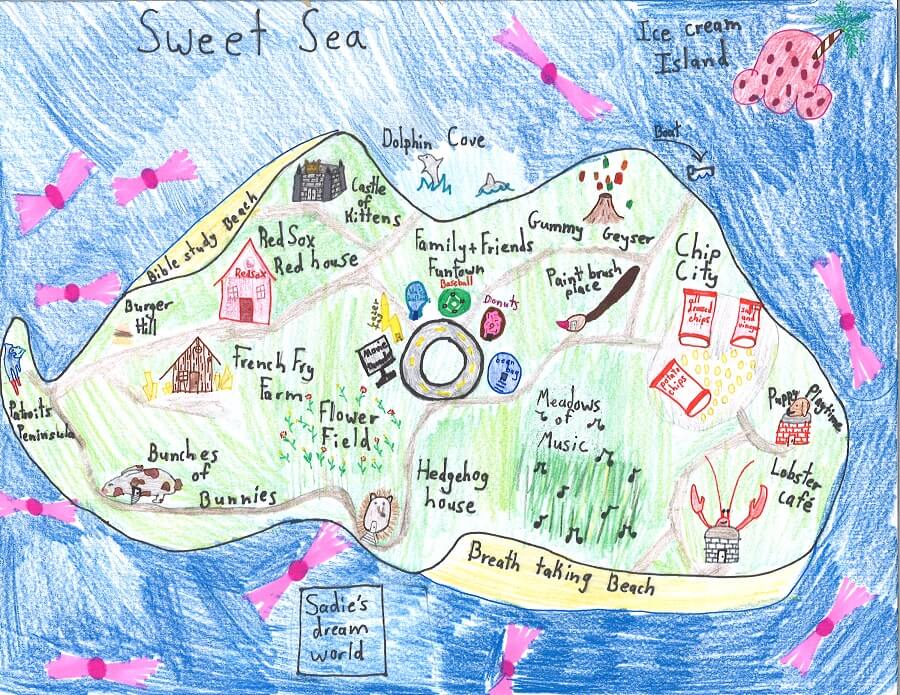 Sweet Sea
Ice cream
Island
Boat
Dolphin Cove
Castle
of
Kittens
Bible study Beach
Gummy Geyser
Red Sox
Red house
RedSox
Family + Friends
Funtown
Baseball
Donuts
Paint brush
place
Chip
City
all
chips
salt
and
potato
chips
Burger
Hill
Lazer
tag
Movie
bean
bag
French Fry
Farm
Flower
Field
Meadows
of
Music
Puppy Playtime
Patroits
Peninsula
Bunches
of
Bunnies
Hedgehog
house
Lobster
café
Breath taking Beach
Sadie's
dream
world